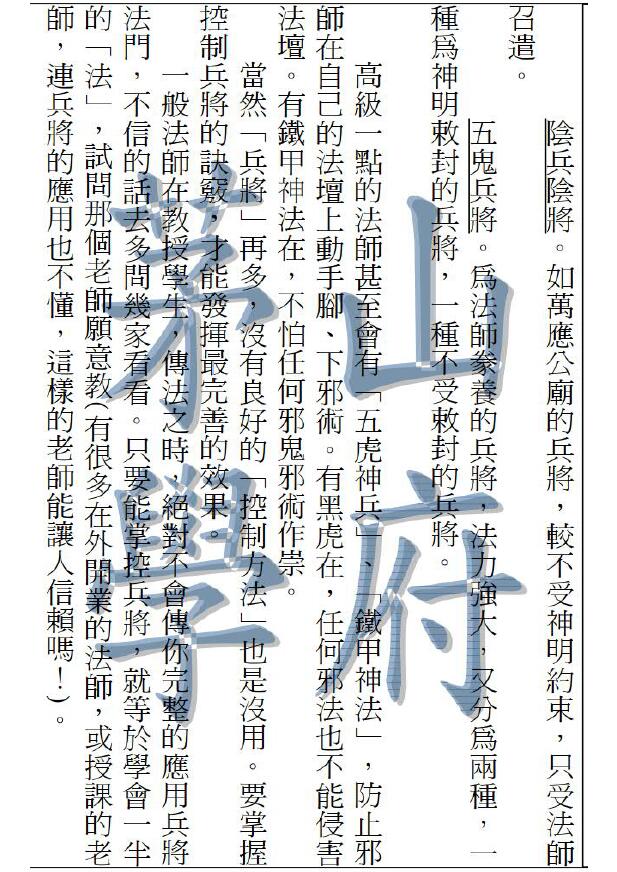 陰兵陰將。如萬應公廟的兵將，較不受神明約束，只受法師
召遣。
五鬼兵將。為法師豢養的兵將，法力強大，又分為兩種，一
種為神明敕封的兵將，一種不受敕封的兵將。
高級一點的法師甚至會有「五虎神兵」、「鐵甲神法」，防止邪
師在自己的法壇上動手腳、下邪術。有黑虎在，任何邪法也不能侵害
法壇。有鐵甲神法在，不怕任何邪鬼邪術作祟。
當然「兵將」再多，沒有良好的「控制方法」也是沒用。要掌握
控制兵將的訣竅，才能發揮最完善的效果。
一般法師在教授學生，傳法之時，絕對不會傳你完整的應用兵將
法門，不信的話去多問幾家看看。只要能掌控兵將，就等於學會一半
的「法」，試問那個老師願意教(有很多在外開業的法師，或授課的老
師，連兵將的應用也不懂，這樣的老師能讓人信賴嗎！)。
山府
茅學